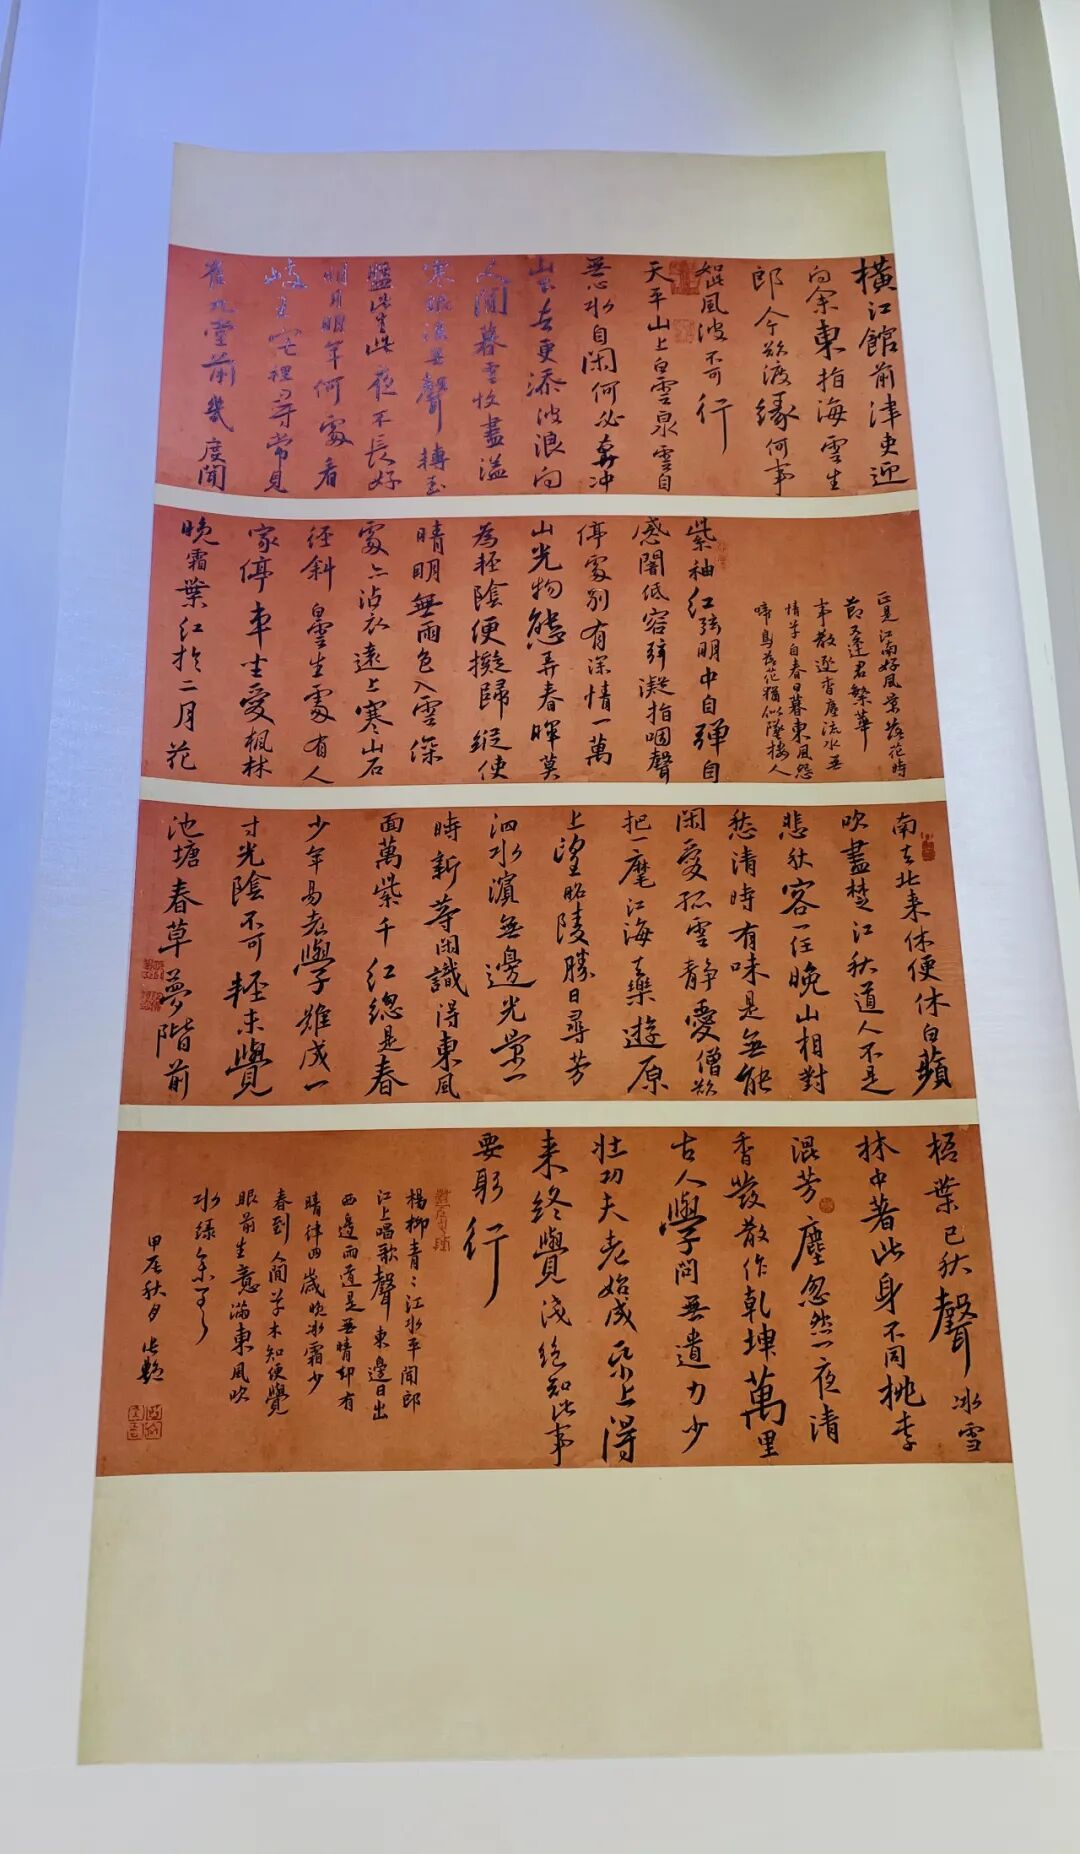 橫江館前津吏迎
向余東指海雲生
郎今欲渡緣何事
如此風波不可行
天平山上白雲泉雲自
無心水自閑何必奔冲
山下去更添波浪向
人間暮雲收盡溢
清寒銀漢無聲轉玉
盤此生此夜不長好
明月明年何處看
岐王宅裡尋常見
崔九堂前幾度聞
正是江南好風景落花時
節又逢君繁華
事散逐香塵流水無
情草自春日暮東風怨
啼鳥落花猶似墜樓人
紫袖紅弦明中自彈自
感闇低容弹凝指咽聲
停處別有深情一萬
山光物態弄春暉莫
為輕陰便擬歸縱使
晴明無雨色入雲深
處亦沾衣遠上寒山石
徑斜白雲生處有人
家停車坐愛楓林
晚霜葉紅於二月花
南去北来休便休白蘋
吹盡楚江秋道人不是
悲秋客一任晚山相對
愁清時有味是無能
閑愛孤雲靜愛僧欲
把一麾江海去樂遊原
上望昭陵勝日尋芳
泗水濱無邊光景一
時新等閑識得東風
面萬紫千紅總是春
少年易老學難成一
寸光陰不可輕未覺
池塘春草夢階前
梧葉已秋聲冰雪
林中著此身不同桃李
混芳塵忽然一夜清
香發散作乾坤萬里
古人學問無遺力少
壯功夫老始成紙上得
来終覺淺絕知此事
要躬行
楊柳青江水平聞郎
江上唱歌聲東邊日出
西邊雨道是無晴却有
晴律回歲晚冰霜少
春到人間草木知便覺
眼前生意滿東風吹
水綠參差
甲辰秋月